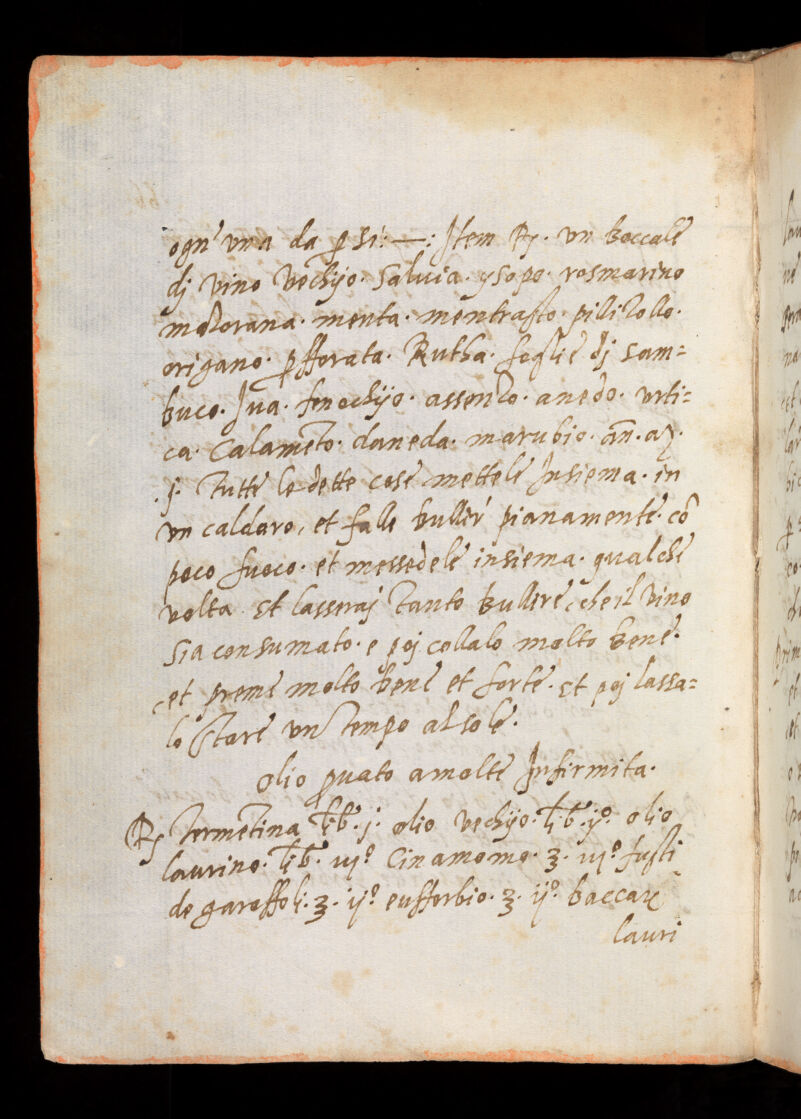 ogn' vna da ꝑ si: —: Item ℞. vn boccale
dj vino vechijo. saluia. ysopo. rosmarino
mazorana. menta. mentrasto. pilizollo.
origano. ꝑfforata. Rutha. foglie dj sam=
buco. Iua. fenochijo. assenzo. anedo. vrti=
ca. Calameto. daneda. marubio. añ.
.j. Tutte le dette cose mettele Insiema. in
vn caldaro, et falle bullir' pianamente. cõ
poco fuoco. et messedele insiema. qualche
volta. et lasseraj tanto bullire, che il vino
sia consumato. e poj collalo molto bene.
et preme molto bene et forte. et poj lassa=
lo stare vn tempo al sole.
olio ꝓuato a molte Infirmita.
℞ Termẽtina l̃b̃. j. olio vechijo. l̃b̃. ijº. olio
laurino. l̃b̃. iijº Cinamomo. ʒ. iijº fusti
de garoffoli. ʒ. ijº eufforbio. ʒ. ijº. baccar
lauri